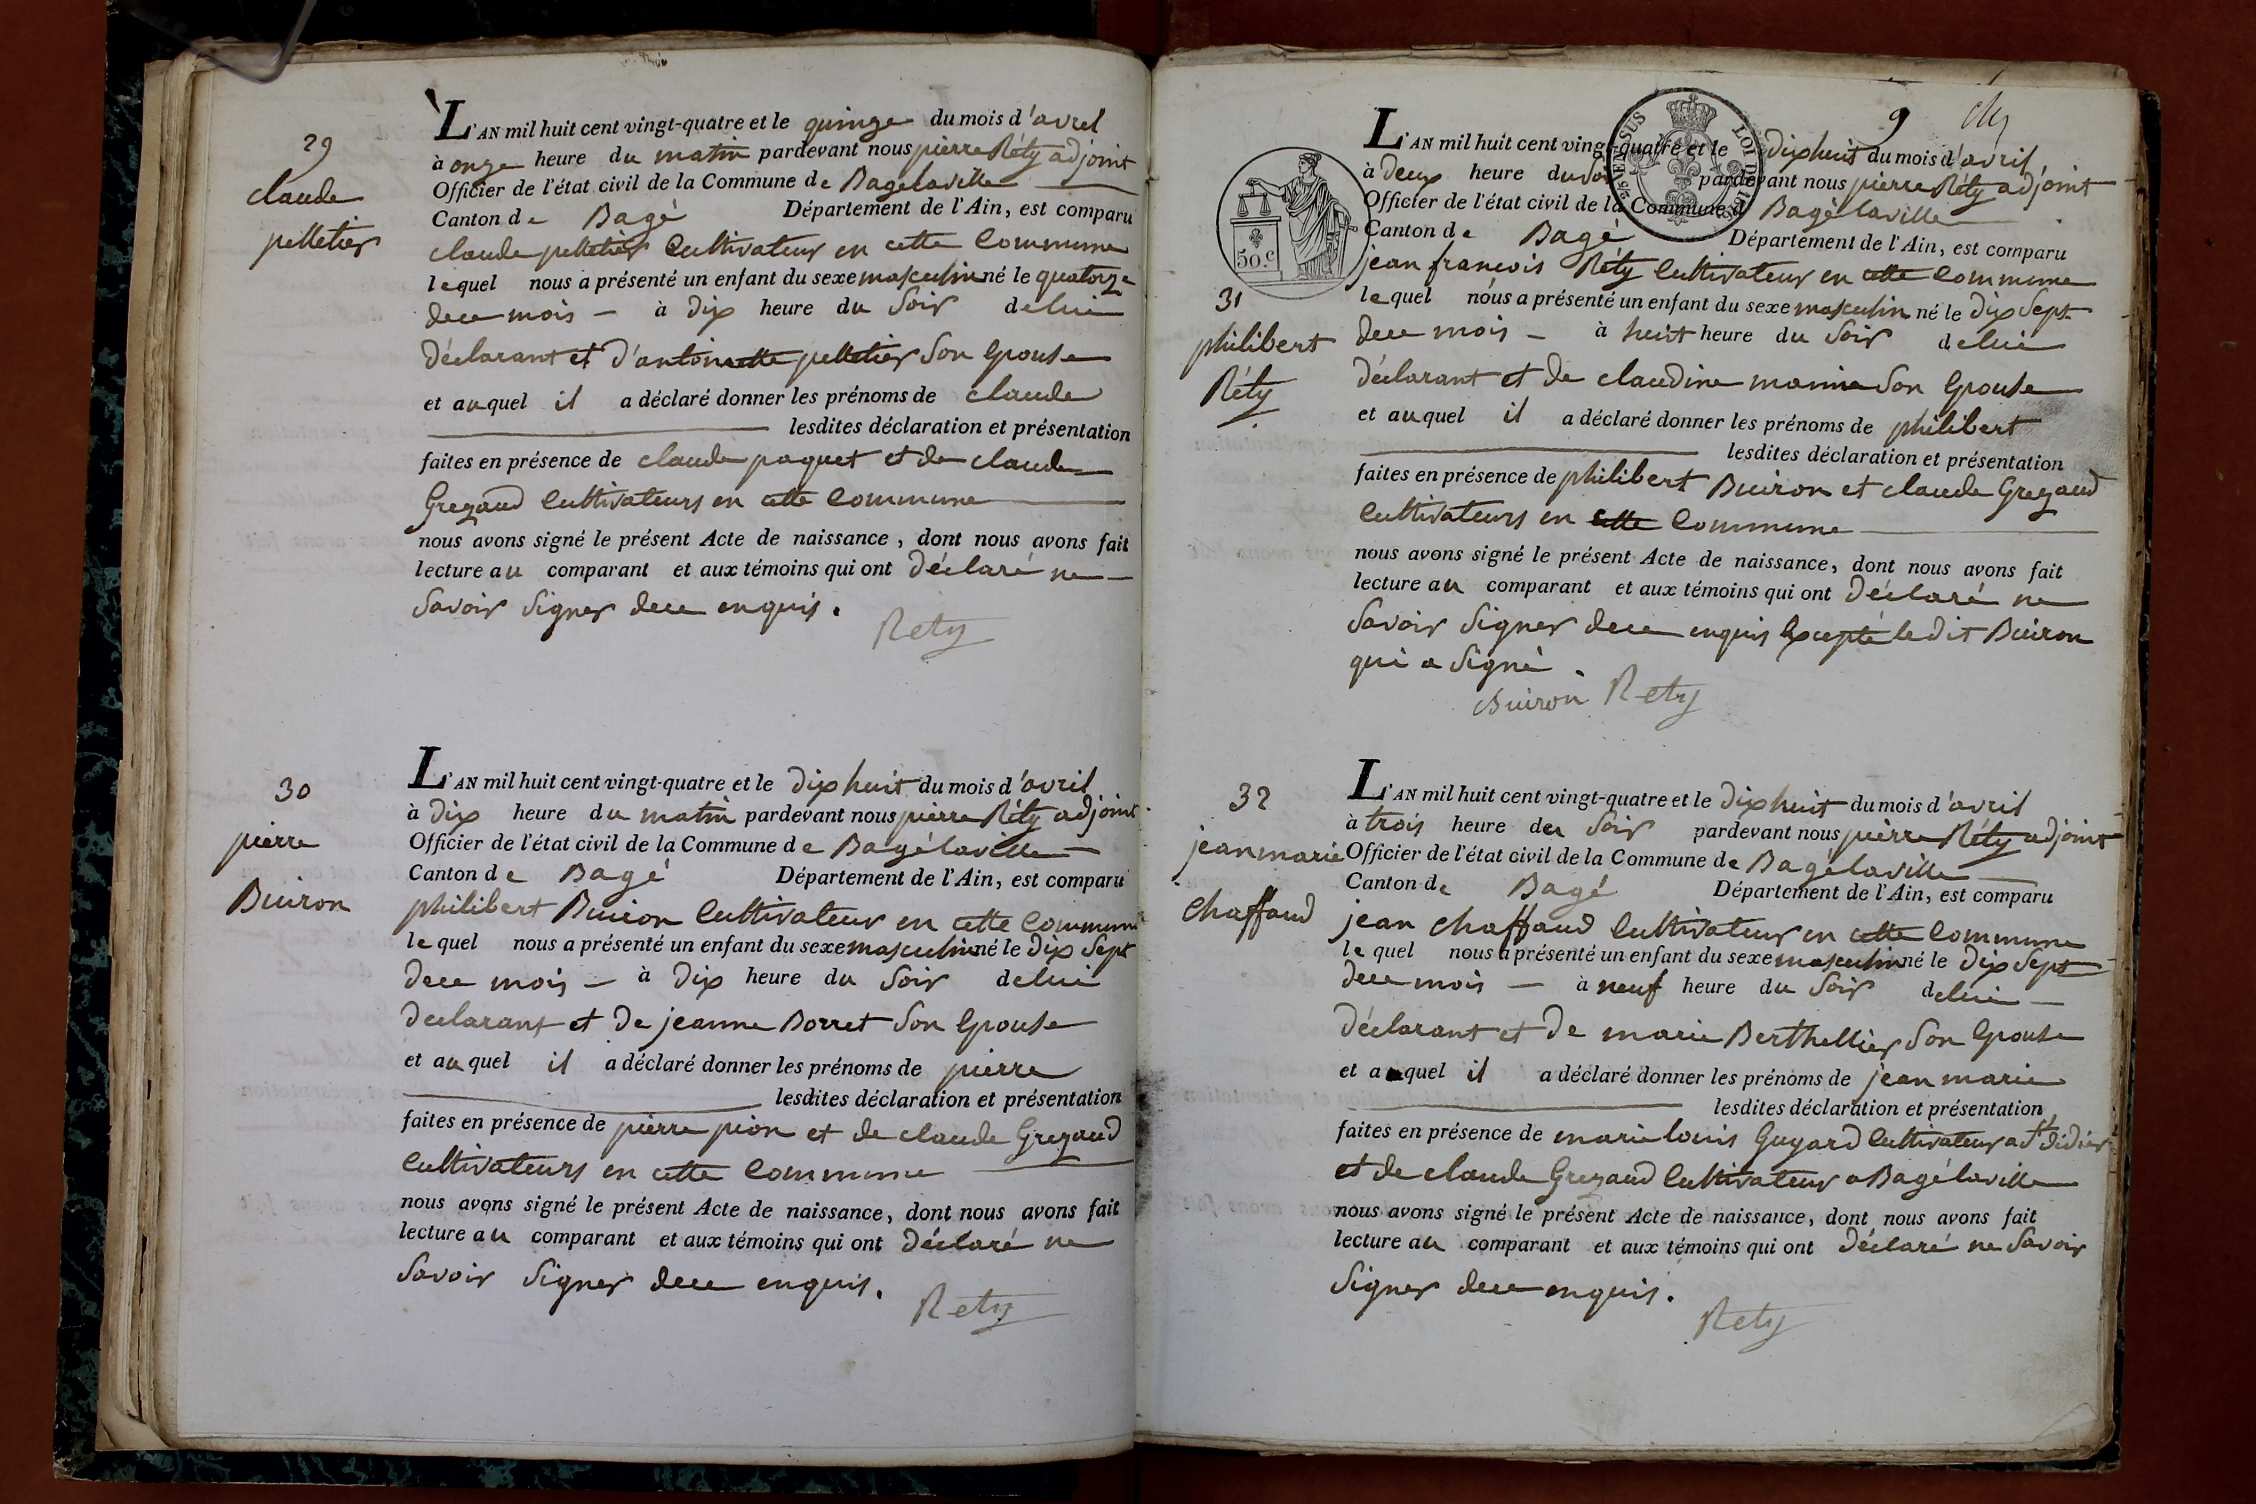 29
claude
pelletier
L'AN mil huit cent vingt-quatre et le quinze du mois d'avril
à onze heure du matin pardevant nous pierre Réty adjoint
Officier de l'état civil de la Commune de Bagelaville
Canton de Bagé Département de l'Ain, est comparu
claude pelletier Cultivateur en cette Commune
lequel nous a présenté un enfant du sexe masculin né le quatorze
dece mois à dix heure du Soir delui
déclarant et d'antoinette pelletier Son Epouse
et auquel il a déclaré donner les prénoms de claude
lesdites déclaration et présentation
faites en présence de claude paquet et de claude
Grezaud Cultivateurs en cette Commune
nous avons signé le présent Acte de naissance, dont nous avons fait
lecture au comparant et aux témoins qui ont déclaré ne
Savoir Signer dece enquis.
Rety
30
pierre
Buiron
L'AN mil huit cent vingt-quatre et le dix huit du mois d'avril
à dix heure du matin pardevant nous pierre Réty adjoint
Officier de l'état civil de la Commune de Bagélaville
Canton de Bagé Département de l'Ain, est comparu
philibert Buiron Cultivateur en cette Commune
lequel nous a présenté un enfant du sexe masculin né le dix Sept
dece mois à dix heure du Soir delui
declarant et de jeanne Borret Son Epouse
et auquel il a déclaré donner les prénoms de pierre
lesdites déclaration et présentation
faites en présence de pierre pion et de claude Grezaud
Cultivateurs en cette Commune
nous avons signé le présent Acte de naissance, dont nous avons fait
lecture au comparant et aux témoins qui ont déclaré ne
Savoir Signer dece enquis.
Rety
9
50.c
31
philibert
Réty
L'AN mil huit cent vingt-quatre et le dixhuit du mois d'avril
à deux heure du Soir pardevant nous pierre Réty adjoint
Officier de l'état civil de la Commune d Bagélaville
Canton de Bagé Département de l'Ain, est comparu
jean francois Réty Cultivateur en cette Commune
lequel nous a présenté un enfant du sexe masculin né le dix Sept
dece mois à huit heure du Soir delui
déclarant et de claudine manin Son Epouse
et auquel il a déclaré donner les prénoms de philibert
lesdites déclaration et présentation
faites en présence de philibert Buiron et claude Grezaud
Cultivateurs en cette Commune
nous avons signé le présent Acte de naissance, dont nous avons fait
lecture au comparant et aux témoins qui ont déclaré ne
Savoir Signer dece enquis Excepté ledit Buiron
qui a Signé.
Buiron Rety
32
jeanmarie
Chaffaud
L'AN mil huit cent vingt-quatre et le dixhuit du mois d'avril
à trois heure du Soir pardevant nous pierre Réty adjoint
Officier de l'état civil de la Commune de Bagélaville
Canton de Bagé Département de l'Ain, est comparu
jean Chaffaud Cultivateur en cette Commune
lequel nous a présenté un enfant du sexe masculin né le dix Sept
dece mois à neuf heure du Soir delui
déclarant et de marie Berthellier Son Epouse
et auquel il a déclaré donner les prénoms de jean marie
lesdites déclaration et présentation
faites en présence de marie louis Guyard Cultivateur a St didier
et de claude Grezaud Cultivateur a Bagélaville
nous avons signé le présent Acte de naissance, dont nous avons fait
lecture au comparant et aux témoins qui ont déclaré ne Savoir
Signer dece enquis.
Rety